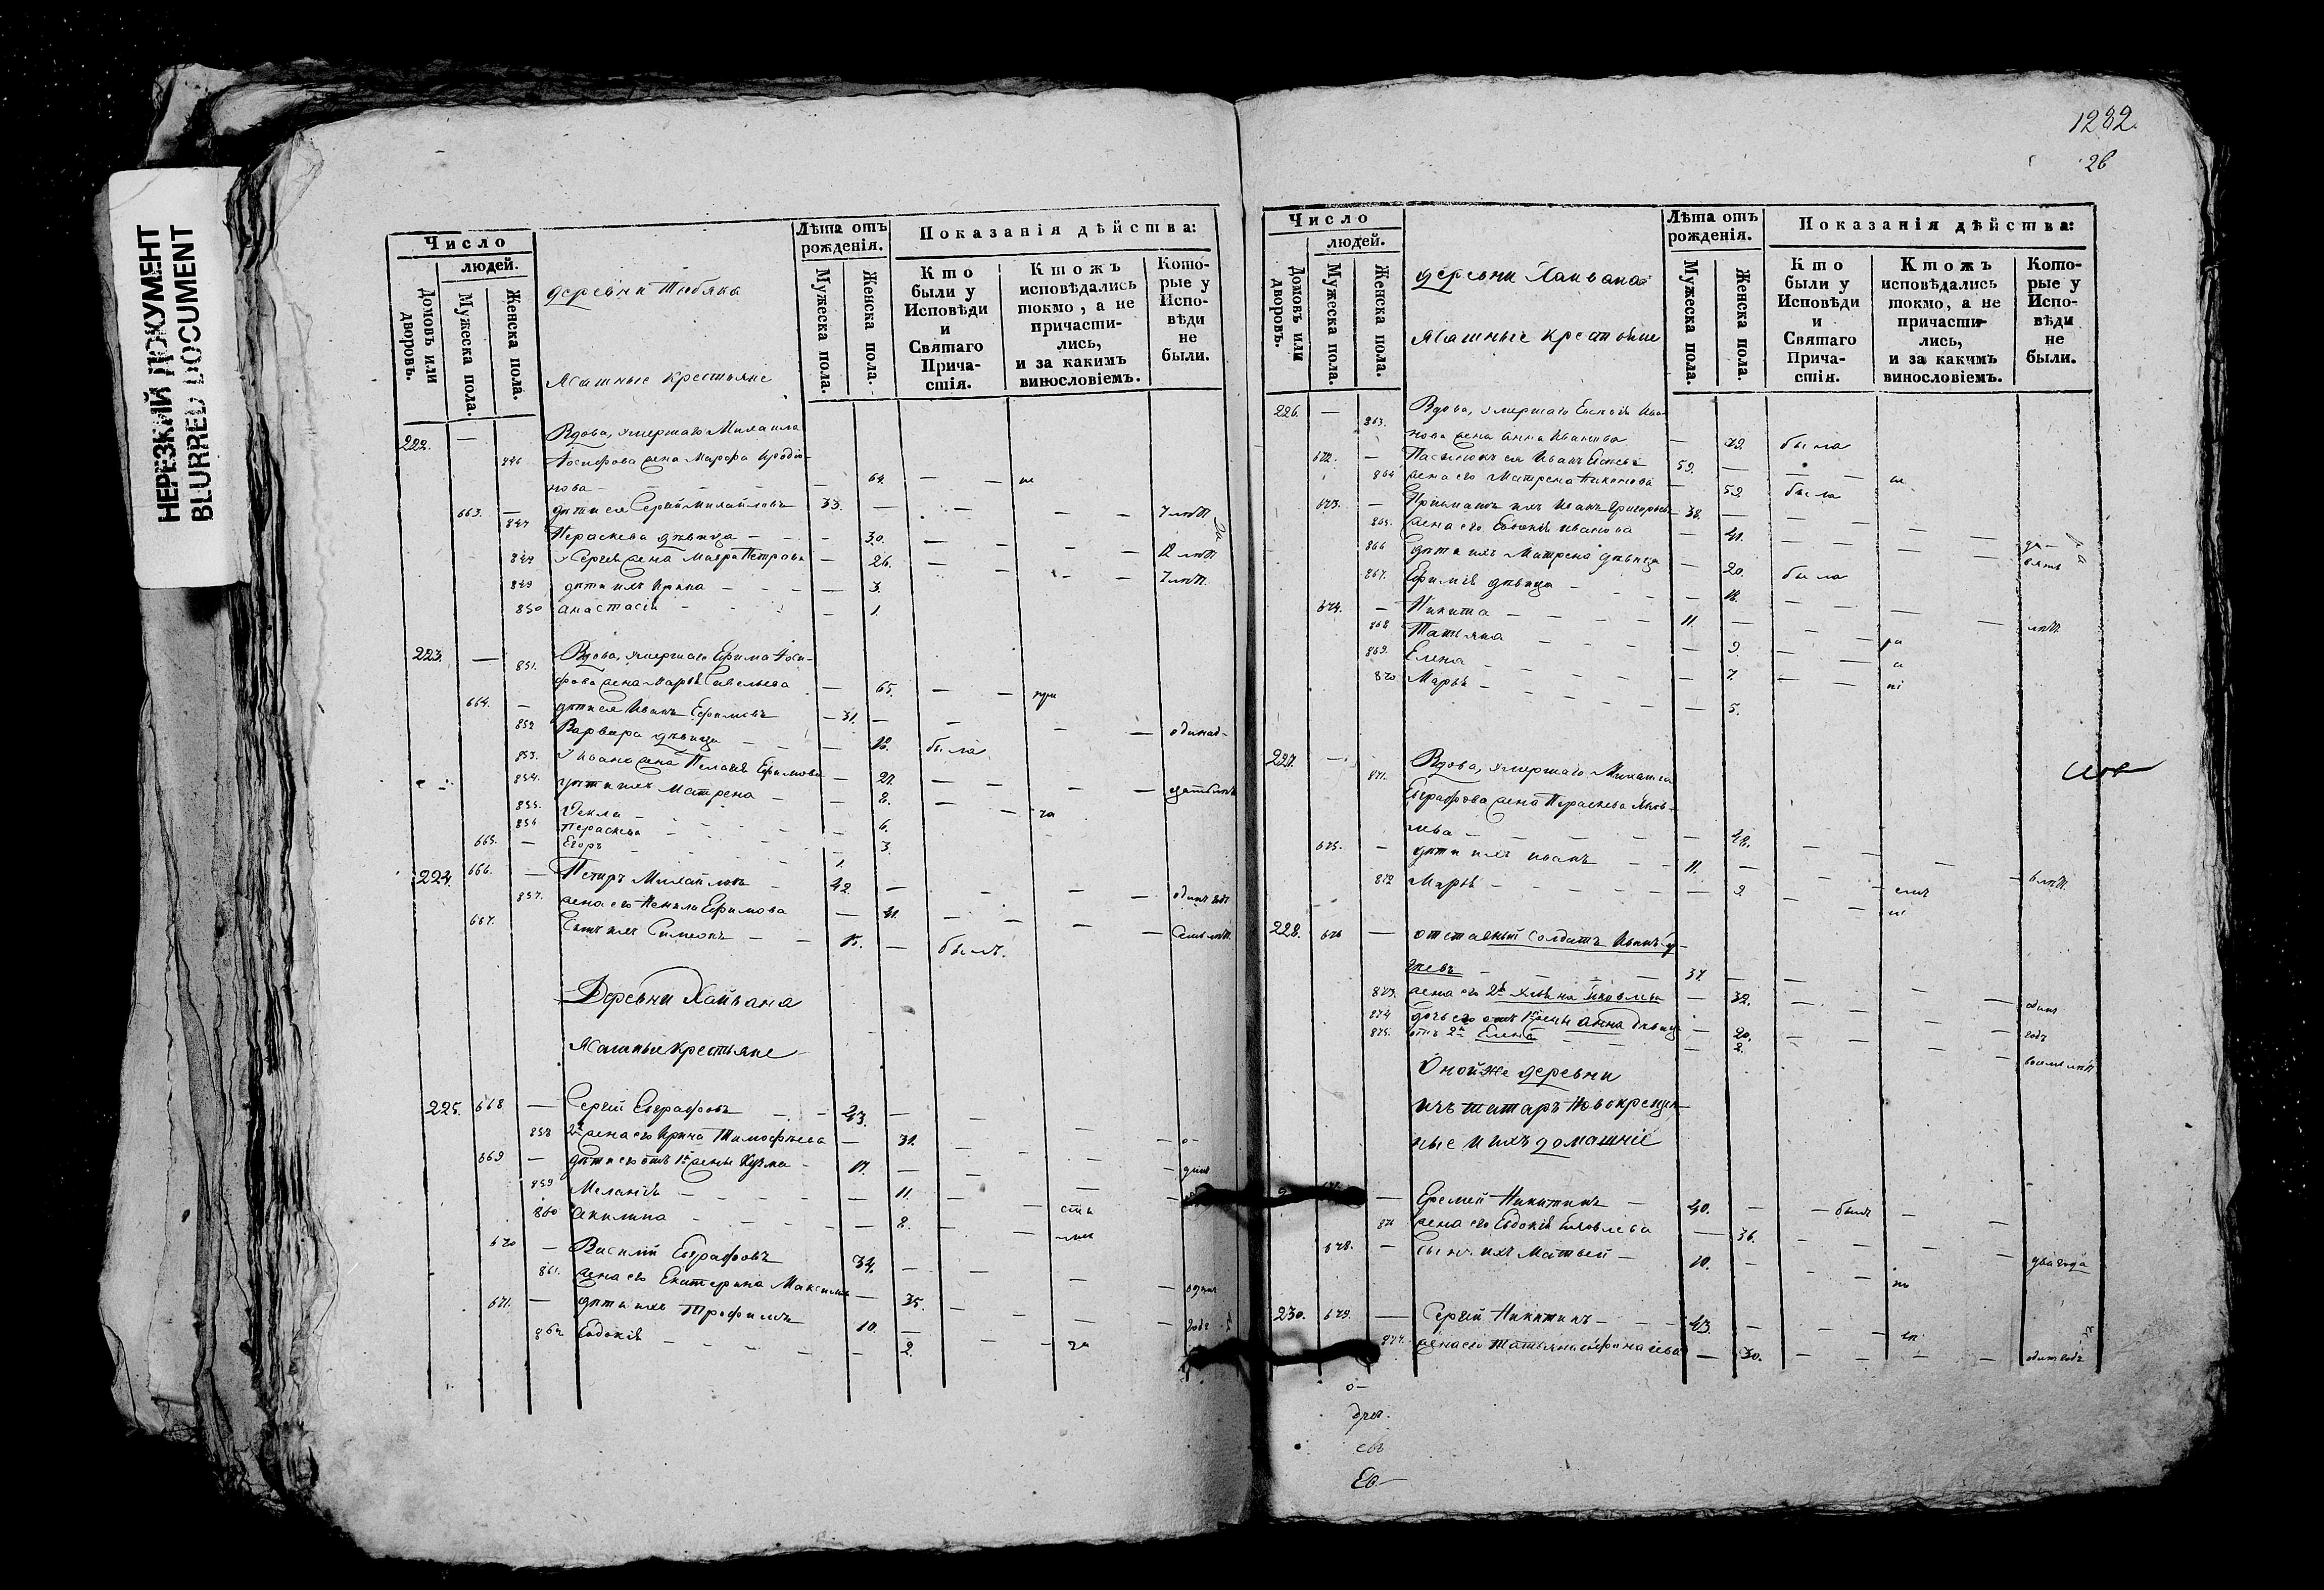 НЕРЕЗКИЙ ДОКУМЕНТ
BLURRED DOCUMENT
Число
людей.
Домовъ или дворовъ.
Мужеска пола.
Женска пола.
деревни Тюбяка
Ясашные крестьяне
Лѣта отъ рожденія.
Мужеска пола.
Женска пола.
Показанія дѣйства:
Кто были у Исповѣди и Святаго Причастія.
Ктожъ исповѣдались токмо, а не причастились, и за какимъ винословіемъ.
Которые у Исповѣди не были.
222. — Вдова, умершаго Михаила
846 Іосифова жена Марфа Иродіо-
нова — 64. — —
663. — дѣти ея Сергѣй Михайловъ 33. — — — 7 лѣт
847 Параскева дѣвица — 30. — — — 12 лѣт
848 у Сергѣя жена Мавра Петрова — 26. — — — 7 лѣт.
849 дѣти ихъ Ирина — 3.
850 Анастасія — 1.
223. — Вдова, умершаго Ефима Іоси-
851. фова жена Марья Савельева — 65. — —
664. — дѣти ея Иванъ Ефимовъ — 31. — — — одинад-
852 Варвара дѣвица — 18. была
853. У Ивана жена Пелагея Ефимова — 27. — — — цать лѣтъ
854. дѣти ихъ Матрена — 8. —
855. Ѳекла — 6.
856 Параскева — 3.
665. — Егоръ — 1.
224. 666. — Петръ Михайловъ — 42. — — — одинъ годъ
857. жена его Ненила Ефимова — 41. — — — Семь лѣт.
667. Сынъ ихъ Симеонъ — 15. — былъ.
Деревни Хайвана
Ясашные крестьяне
225. 668 — Сергѣй Евграфовъ — 43. —
858 2я жена его Ирина Тимофѣева — 31. — — о-
669 — дѣти его отъ 1й жены Кузма — 17. — — динъ
859 Меланія — 11. —
860 Акилина — 8. —
670 — Василій Евграфовъ 34. — —
861. жена его Екатерина Максимова — 35. — — одинъ
671. — дѣти ихъ Трофимъ 10. — — годъ
862 Евдокія — 2. —
1282.
26
Число
людей.
Домовъ или дворовъ.
Мужеска пола.
Женска пола.
деревни Хаивана
Ясашные крестьяне
Лѣта отъ рожденія.
Мужеска пола.
Женска пола.
Показанія дѣйства:
Кто были у Исповѣди и Святаго Причастія.
Ктожъ исповѣдались токмо, а не причастились, и за какимъ винословіемъ.
Которые у Исповѣди не были.
226. — Вдова, умершаго Ива-
863. нова жена Анна Иванова — 79. была
672. — Пасынокъ ея Иванъ 59. — —
864 жена его Матрена Никонова — 52. была
673. — Пріимышъ ихъ Иванъ Григорьевъ 38. — — —
865. жена его Евдокія Иванова — 41. — — де-
866 дѣти ихъ Матрена дѣвица — 20. была вять
867. Ефимія дѣвица — 18. — —
674. — Никита — 11. — — лѣт.
868 Татьяна — 9. —
869. Елена — 7. —
870 Марья — 5.
227. — Вдова, умершаго Михаила
871. Евграфова жена Параскева Яков-
лева — 48. — — 6 лѣт.
675. — дѣти ихъ Иванъ — 11. — —
872 Марья — 9 — —
228. 676 — отставный Солдатъ Иванъ
37 — —
873. жена его 2я Яковлева — 32. — — одинъ
874 дочь его отъ 1й жены Анна дѣвица — 20. — — годъ
875. отъ 2й Елена — 2. восемь лѣт
Оной же деревни
изъ татаръ Новокрещен-
ные и ихъ домашніе
— Еремей Никитинъ — 40. — былъ —
876 жена его Евдокія Яковлева — 36. — —
678. — Сынъ ихъ Матвей — 10. — — два года
230. 679. — Сергѣй Никитинъ — 43. — —
877. жена его Татьяна Афанасьева — 30. — — — одинъ годъ